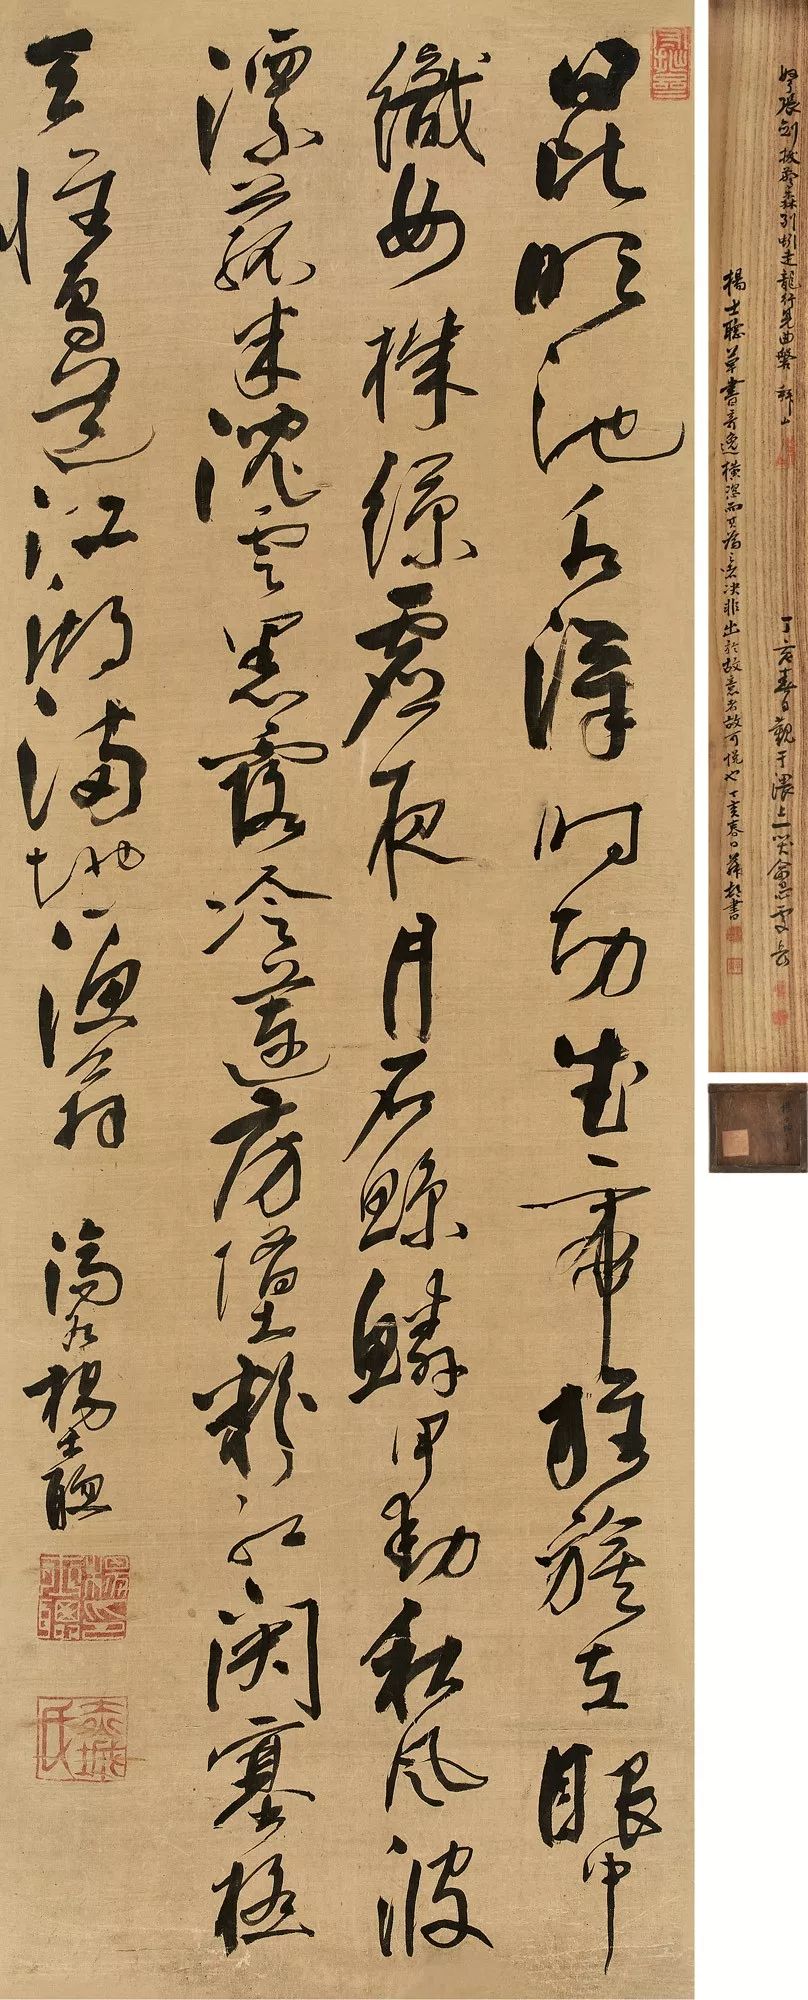 昆明池水漢時功武帝旌旗在眼中
織女機絲虛夜月石鯨鱗甲動秋風波
漂菰米沈雲黑露冷蓮房墜粉紅關塞極
天惟鳥道江湖滿地一漁翁 濟水楊士聰
弩張劍拔森列蚓走龍行見曲盤
丁亥春日觀于滬上
楊士聰草書奇逸橫溢而決非出於故意者故可悅也丁亥春日書